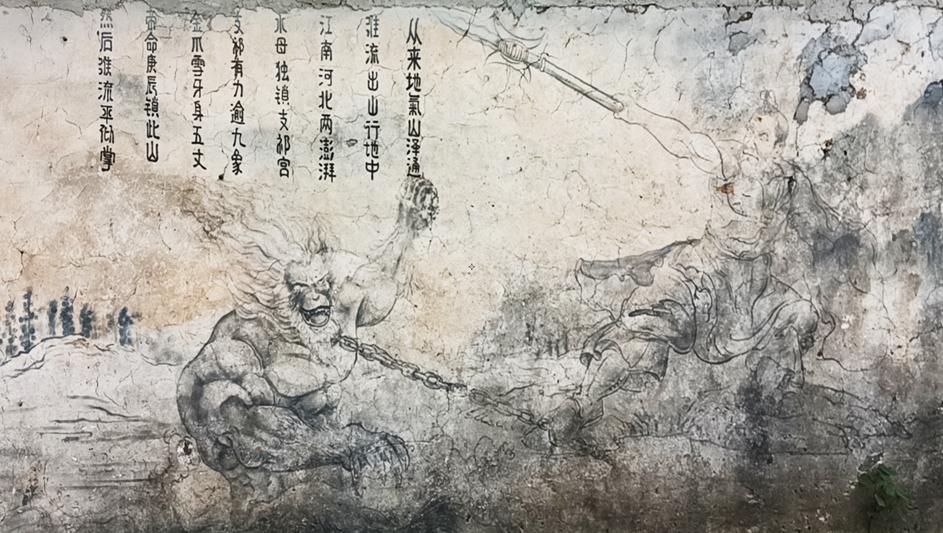 从来地氣山泽通
淮流出山行地中
江南河北两澎湃
水母独镇支祁宫
支祁有力逾九象
金爪雪牙身五丈
帝命庚辰镇此山
然后淮流平似掌